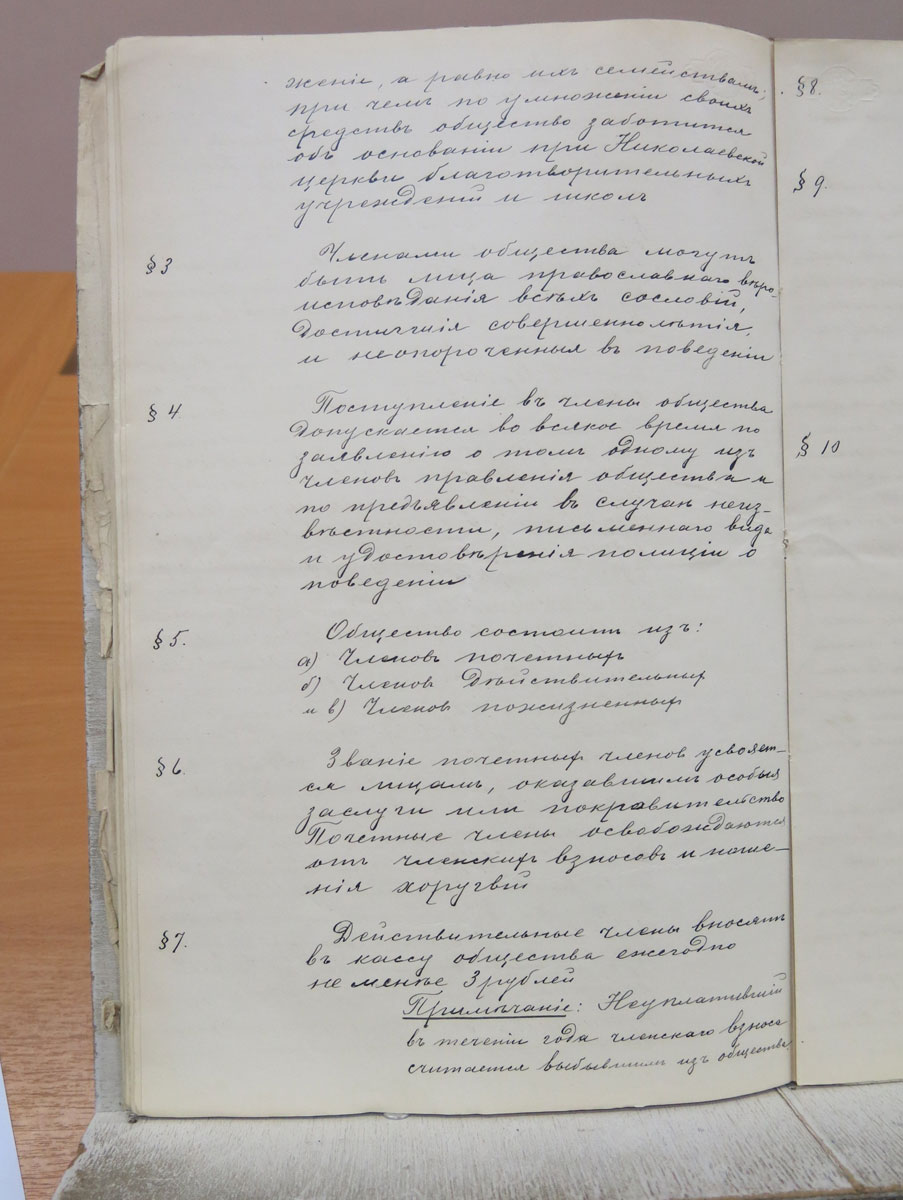 женіе, а равно ихъ семействамъ;
при чемъ по умноженіи своихъ
средствъ общество заботится
объ основаніи при Николаевской
церквѣ благотворительныхъ
учрежденій и школъ
§ 3
Членами общества могутъ
быть лица православнаго вѣро-
исповѣданія всѣхъ сословій,
достигшія совершеннолѣтія
и неопороченныя въ поведеніи
§ 4
Поступленіе въ члены общества
допускается во всякое время по
заявленію о томъ одному изъ
членовъ правленія общества и
по предъявленіи въ случаѣ неиз-
вѣстности, письменнаго вида
и удостовѣренія полиціи о
поведеніи
§ 5.
Общество состоитъ изъ:
а) Членовъ почетныхъ
б) Членовъ Дѣйствительныхъ
и в) Членовъ пожизненныхъ
§ 6.
Званіе почетныхъ членовъ усвояет-
ся лицамъ, оказавшимъ особыя
заслуги или покравительство
Почетные члены освобождаются
отъ членскихъ взносовъ и ноше-
нія хоругвій
§ 7.
Действительные члены вносятъ
въ кассу общества ежегодно
не менѣе 3 рублей
Примѣчаніе: Неуплатившій
въ теченіи года членскаго взноса
считается выбывшимъ изъ общества
§ 8.
§ 9.
§ 10